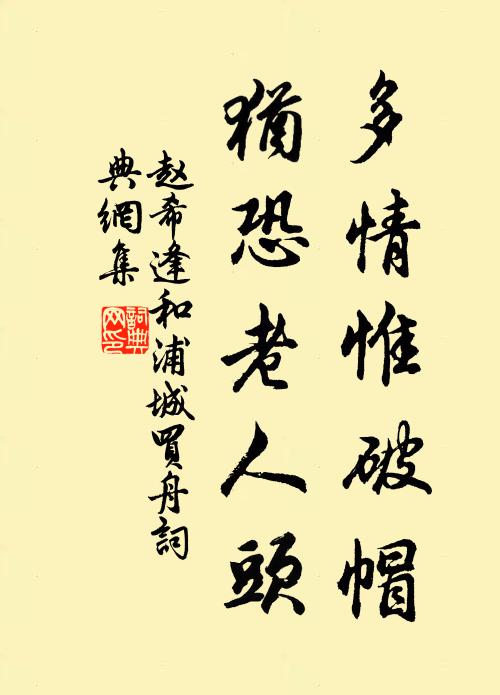 多情惟破帽
猶恐老人頭
赵希逢和浦城買舟詞
典網集
詞典
网印